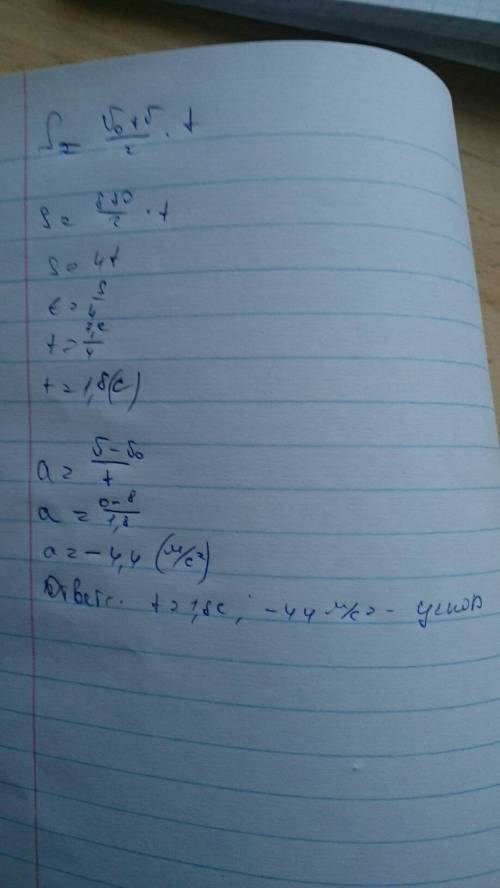 S = (v₀+v)/2 · t
S = (8+0)/2 · t
S = 4t
t = S/4
t = 7,2/4
t = 1,8(с)
a = (v-v₀)/t
a = (0-8)/1,8
a = -4,4 (м/с²)
Ответ: t = 1,8с, -4,4 м/с² -